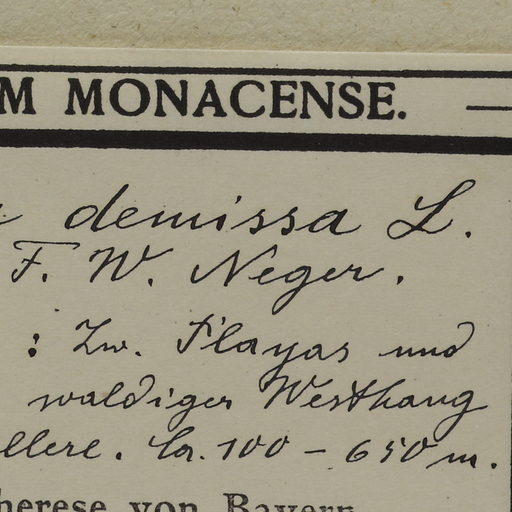 M MONACENSE.
demissa L.
F. W. Neger.
: Zw. Playas und
waldiger Westhang
llere. Ca. 100 - 650 m.
herese von Bayern